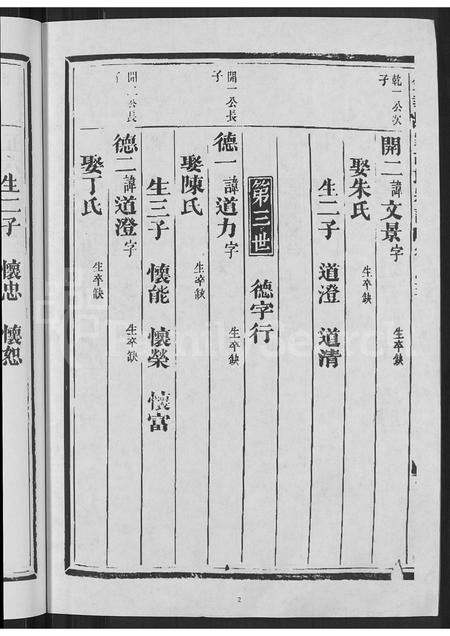 乾一公次子
開二 諱文景 字 生卒缺
娶朱氏 生卒缺
生二子 道澄 道清
第三世 德字行
開一公長子
德一 諱道力 字 生卒缺
娶陳氏 生卒缺
生三子 懷能 懷榮 懷富
開二公長子
德二 諱道澄 字 生卒缺
娶丁氏 生卒缺
2
生二子 懷忠 懷恕
FamilySearch